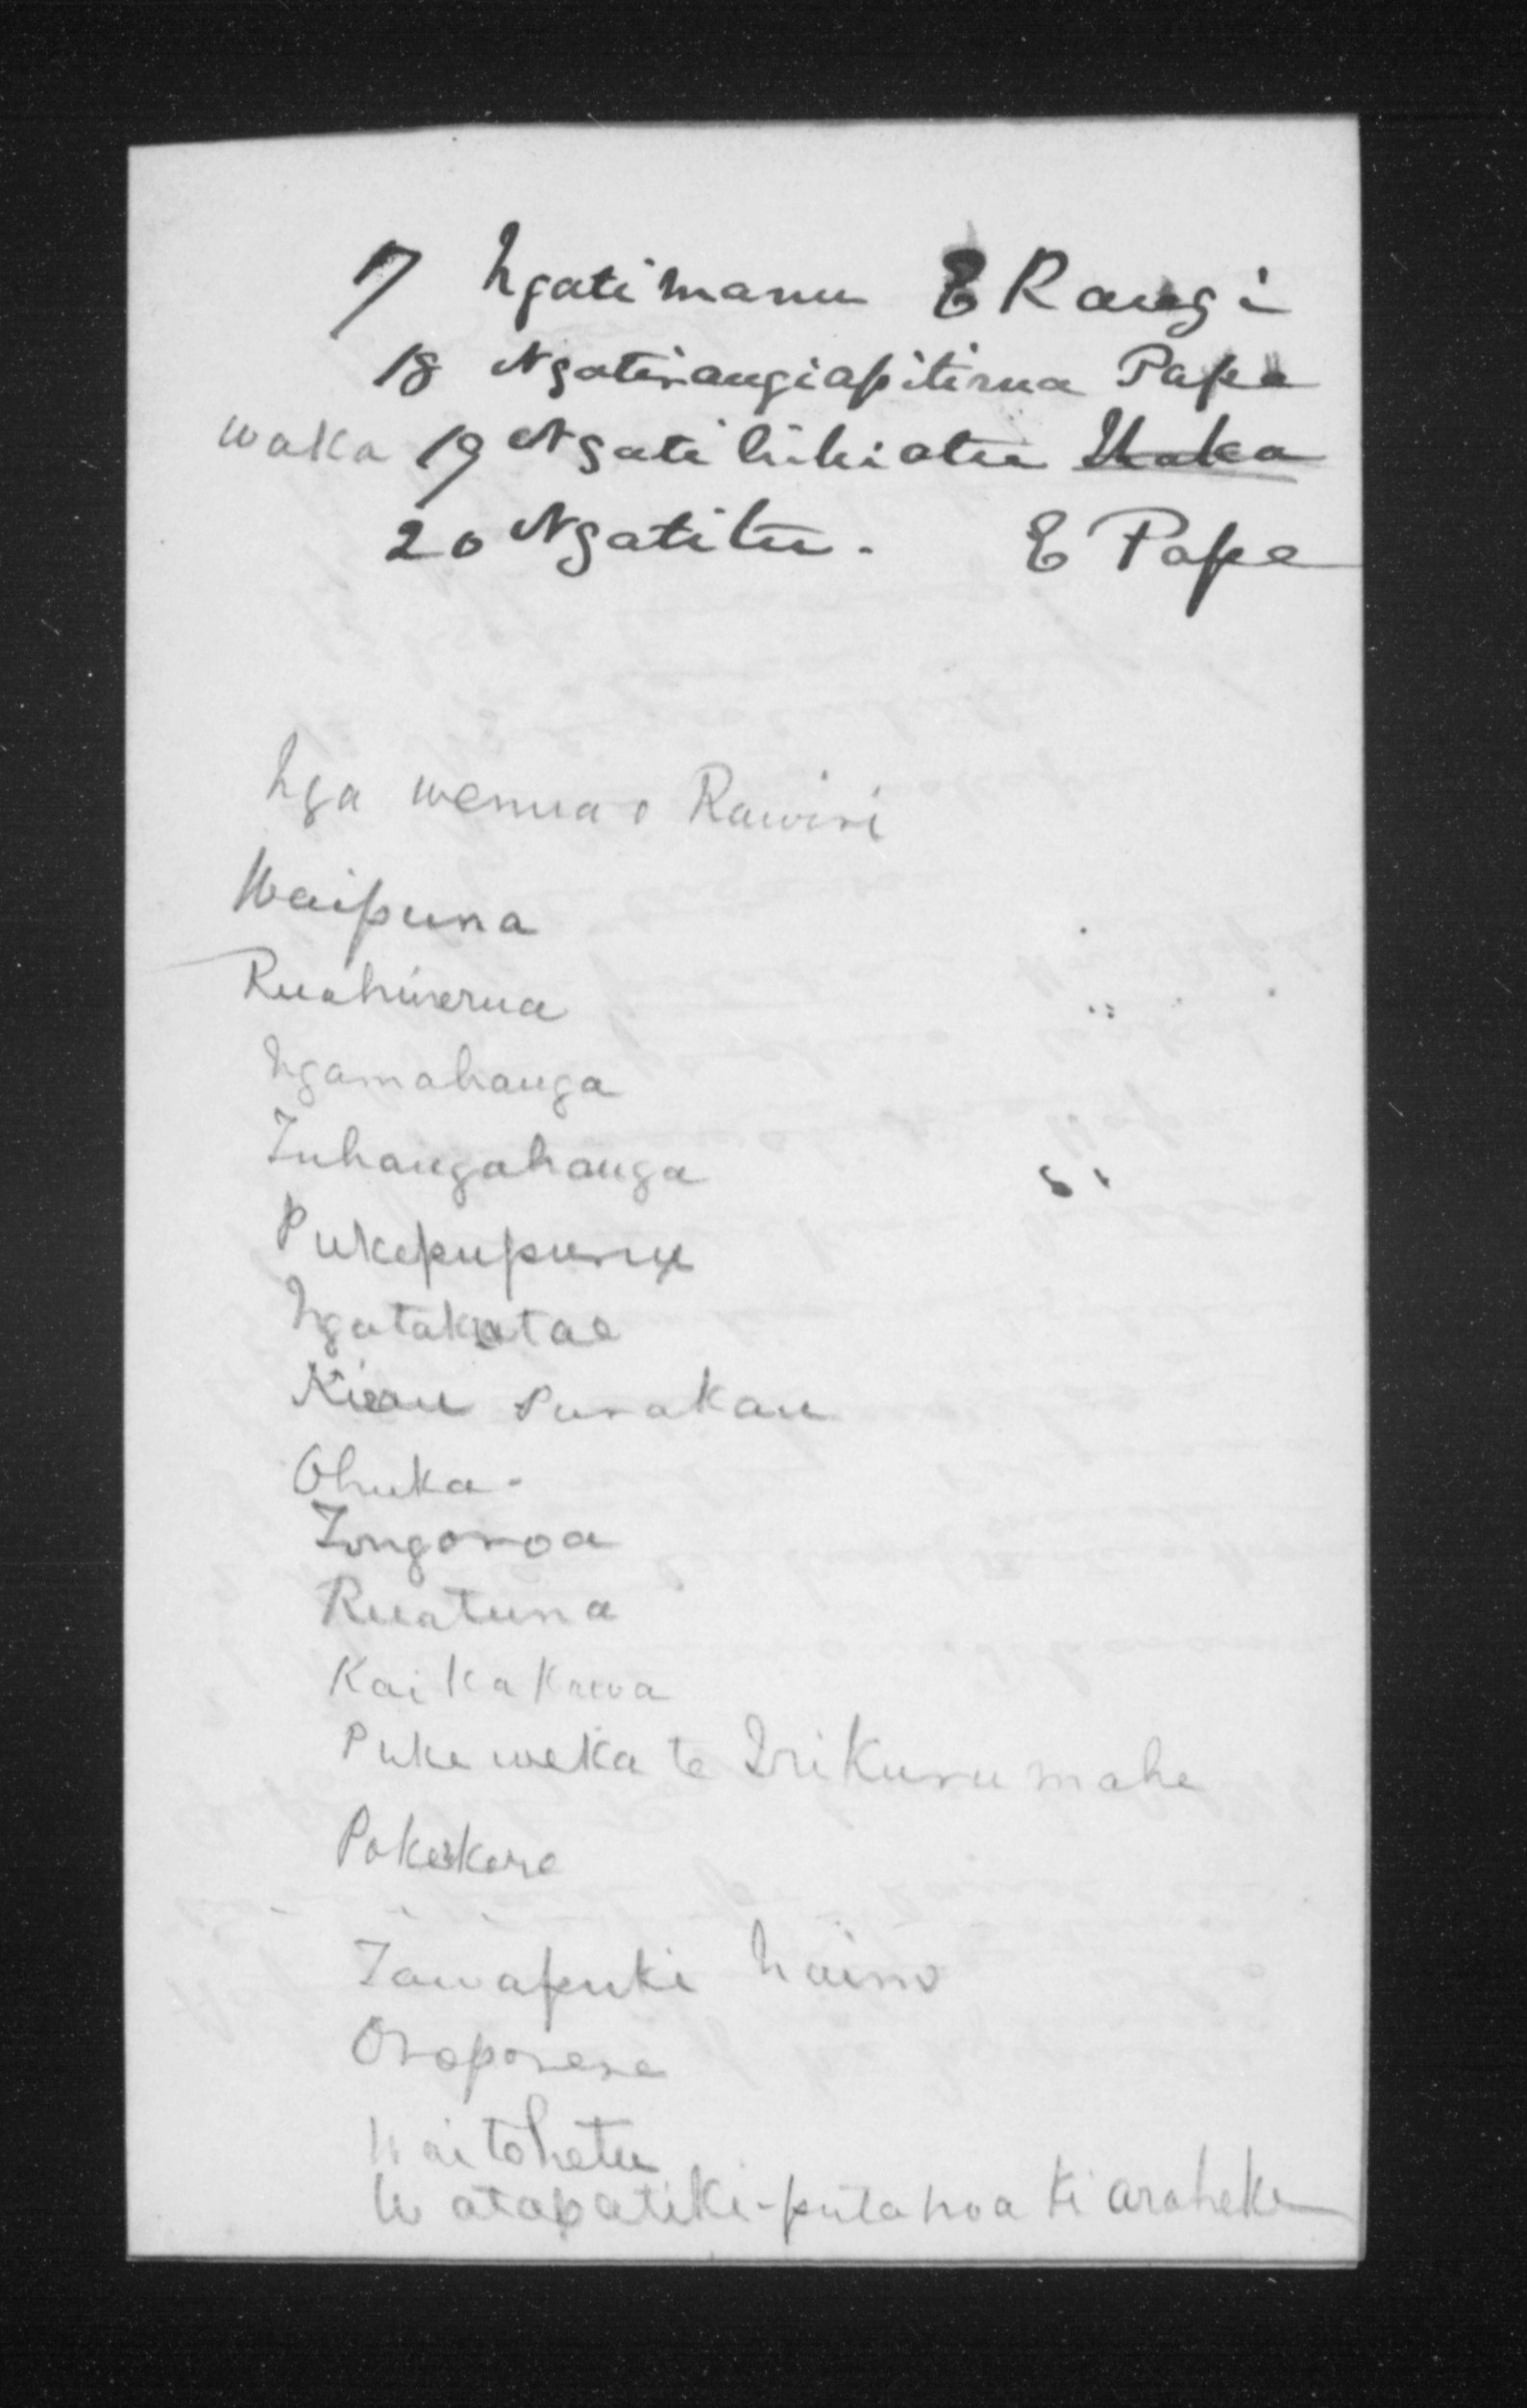 17 Ngatimanu E Rangi
18 Ngatirangiapitirua Papa
waka 19 Ngati hikiatu Waka
20 Ngatitu. E Papa
Nga wenua o Rawiri
Waipuna
Ruahinerua
Ngamahanga
Tuhangahanga
Pukepupuru
Ngatakatae
Purakau
Ohuka -
Tongoroa
Ruatuna
Kaikakawa
Pukeweka te Irikurumahe
Pokekore
Tawapuki
Oroporere
Waitohetu
Watapatiki - putahoa ki araheke